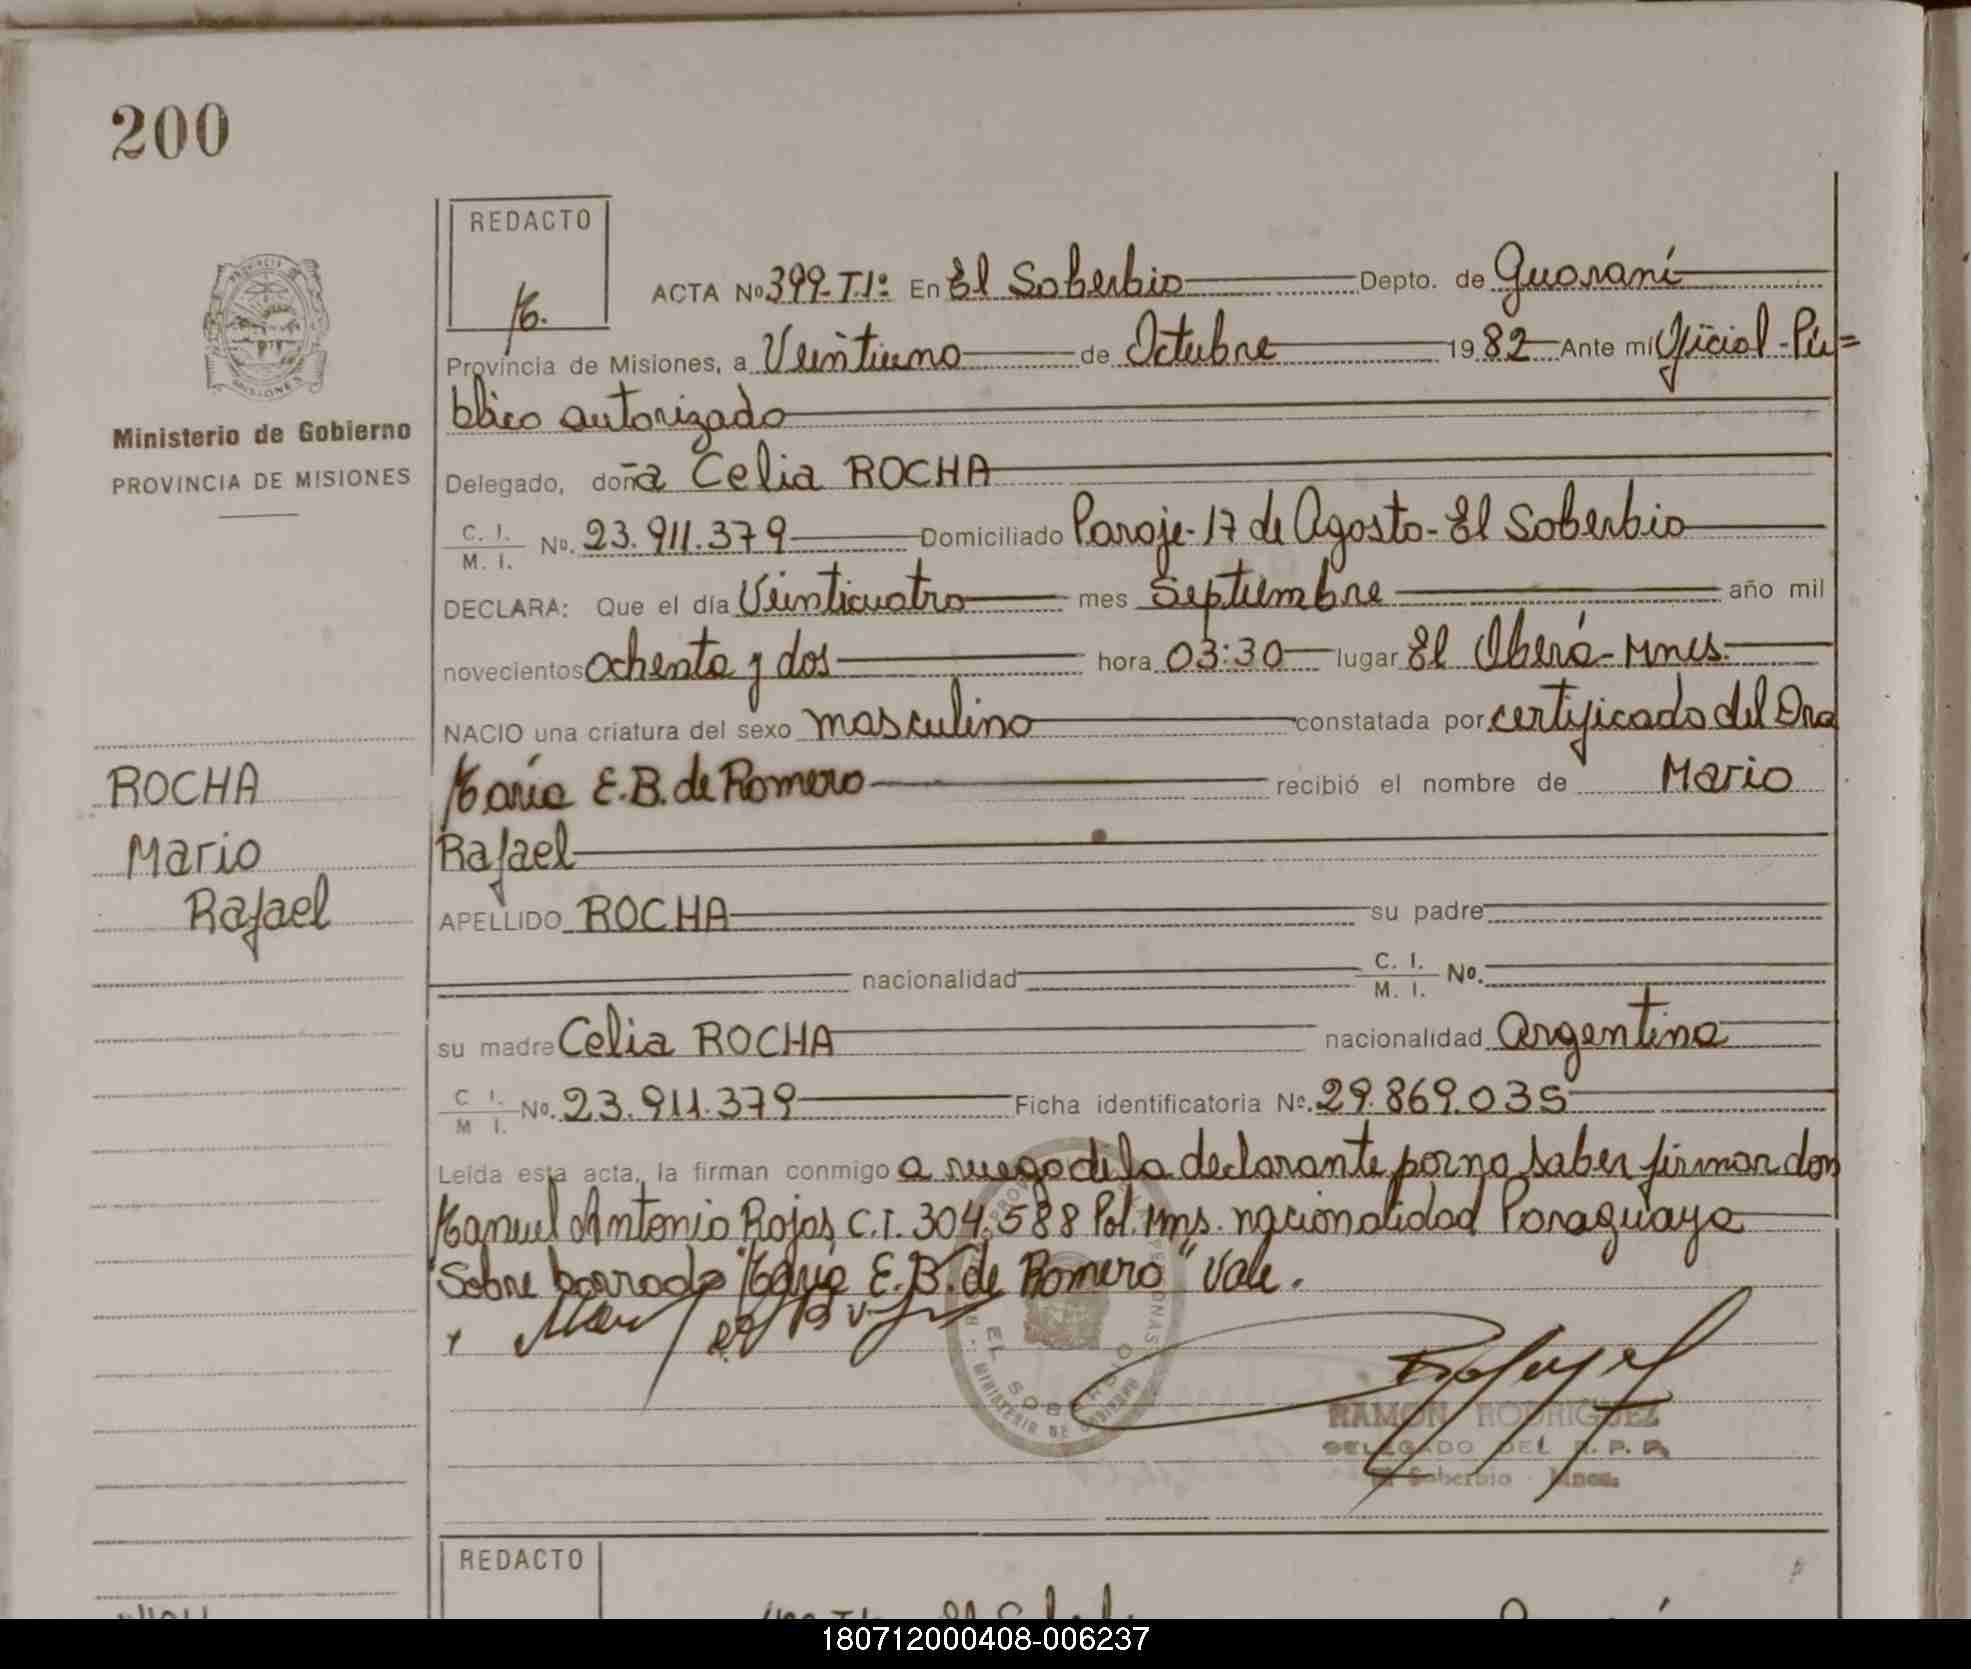 200
REDACTO
M.
PROVINCIA DE
MISIONES
Ministerio de Gobierno
PROVINCIA DE MISIONES
ROCHA
Mario
Rafael
ACTA Nº 399-T.Iº En El Soberbio Depto. de Guaraní
Provincia de Misiones, a Veintiuno de Octubre 1982 Ante mí Oficial-Pú=
blico autorizado
Delegado, doña Celia ROCHA
C. I.
M. I. Nº. 23.911.379 Domiciliado Paraje-17 de Agosto-El Soberbio
DECLARA: Que el día Veinticuatro mes Septiembre año mil
novecientos ochenta y dos hora 03:30 lugar El Oberá-Mnes.
NACIO una criatura del sexo masculino constatada por certificado del Dra
María E.B. de Romero recibió el nombre de Mario
Rafael
APELLIDO ROCHA su padre
nacionalidad C. I.
M. I. Nº.
su madre Celia ROCHA nacionalidad Argentina
C I.
M I. Nº. 23.911.379 Ficha identificatoria Nº. 29.869.035
Leída esta acta, la firman conmigo a ruego de la declarante por no saber firmar don
Manuel Antonio Rojas, C.I. 304.588 Pol. Mns. nacionalidad Paraguaya
"Sobre borrado "María E.B. de Romero" Vale.
EL SOBERBIO
MINISTERIO DE GOBIERNO
RAMON RODRIGUEZ
DELEGADO DEL R. P. P.
El Soberbio - Mnes.
REDACTO
180712000408-006237